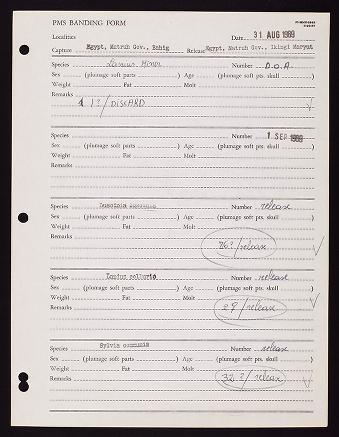 PMS BANDING FORM
Localities Date 31 AUG 1969
Capture Egypt, Matruh Gov., Bahig Release Egypt, Matruh Gov., Ikingi Maryut
Species Lanius Minor Number D.O.A.
Sex (plumage soft parts ) Age (plumage soft pts. skull )
Weight Fat Molt
Remarks
1?/DISCARD
Species Number 1 SEP 1969
Sex (plumage soft parts ) Age (plumage soft pts. skull )
Weight Fat Molt
Remarks
Species Luscinia Number release
Sex (plumage soft parts ) Age (plumage soft pts. skull )
Weight Fat Molt
Remarks
26?/release
Species Lanius collurio Number release
Sex (plumage soft parts ) Age (plumage soft pts. skull )
Weight Fat Molt
Remarks /release
Species Sylvia communis Number release
Sex (plumage soft parts ) Age (plumage soft pts. skull )
Weight Fat Molt
Remarks 32?/release